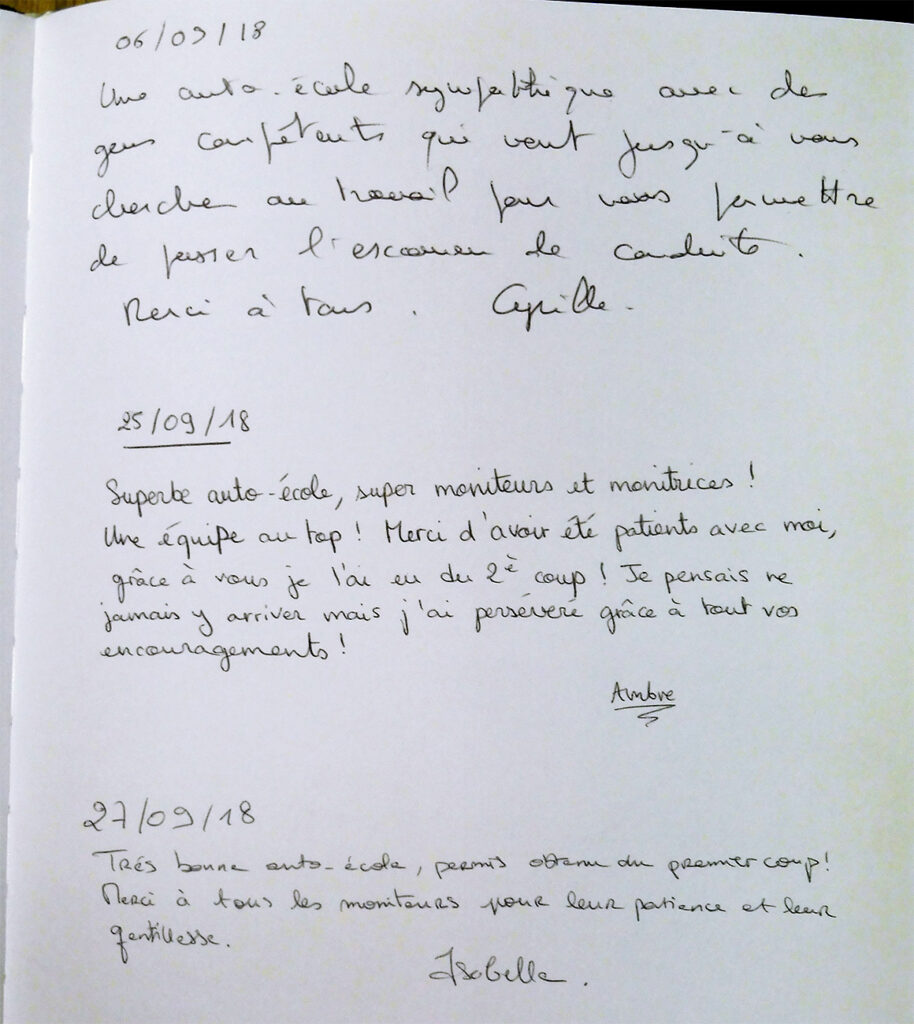 06/09/18
Une auto-école sympathique avec des
gens compétents qui vont jusqu'à vous
chercher au travail pour vous permettre
de passer l'examen de conduite.
Merci à tous. Cyrille.
25/09/18
Superbe auto-école, super moniteurs et monitrices !
Une équipe au top ! Merci d'avoir été patients avec moi,
grâce à vous je l'ai eu du 2è coup ! Je pensais ne
jamais y arriver mais j'ai persévéré grâce à tout vos
encouragements !
Ambre
27/09/18
Trés bonne auto-école, permis obtenu du premier coup !
Merci à tous les moniteurs pour leur patience et leur
gentillesse.
Isabelle.